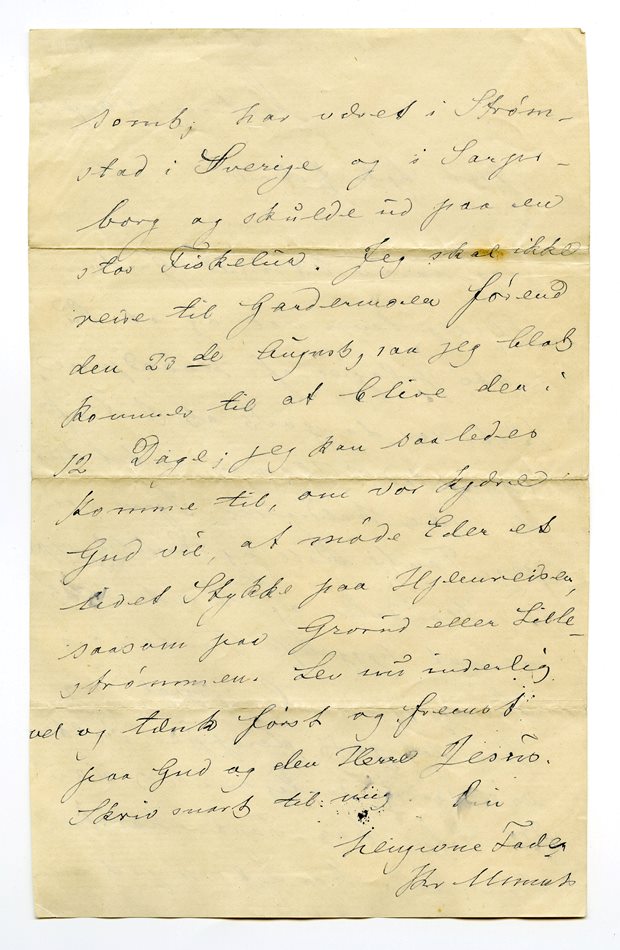 somt, har været i Strøm-
stad i Sverige og i Sarps-
borg og skulde ud paa en
stor Fisketur. Jeg skal ikke
reise til Gardermoen førend
den 23 de August, saa jeg blot
kommer til at blive der i
12 Dage; jeg kan saaledes
komme til, om vor kjære
Gud vil, at møde Eder et
lidet Stykke paa Hjemreisen,
saasom paa Grorud eller Lille-
strømmen. Lev nu inderlig
vel og tænk først og fremst
paa Gud og den Herre Jesus.
Skriv snart til mig. Din
hengivne Fader